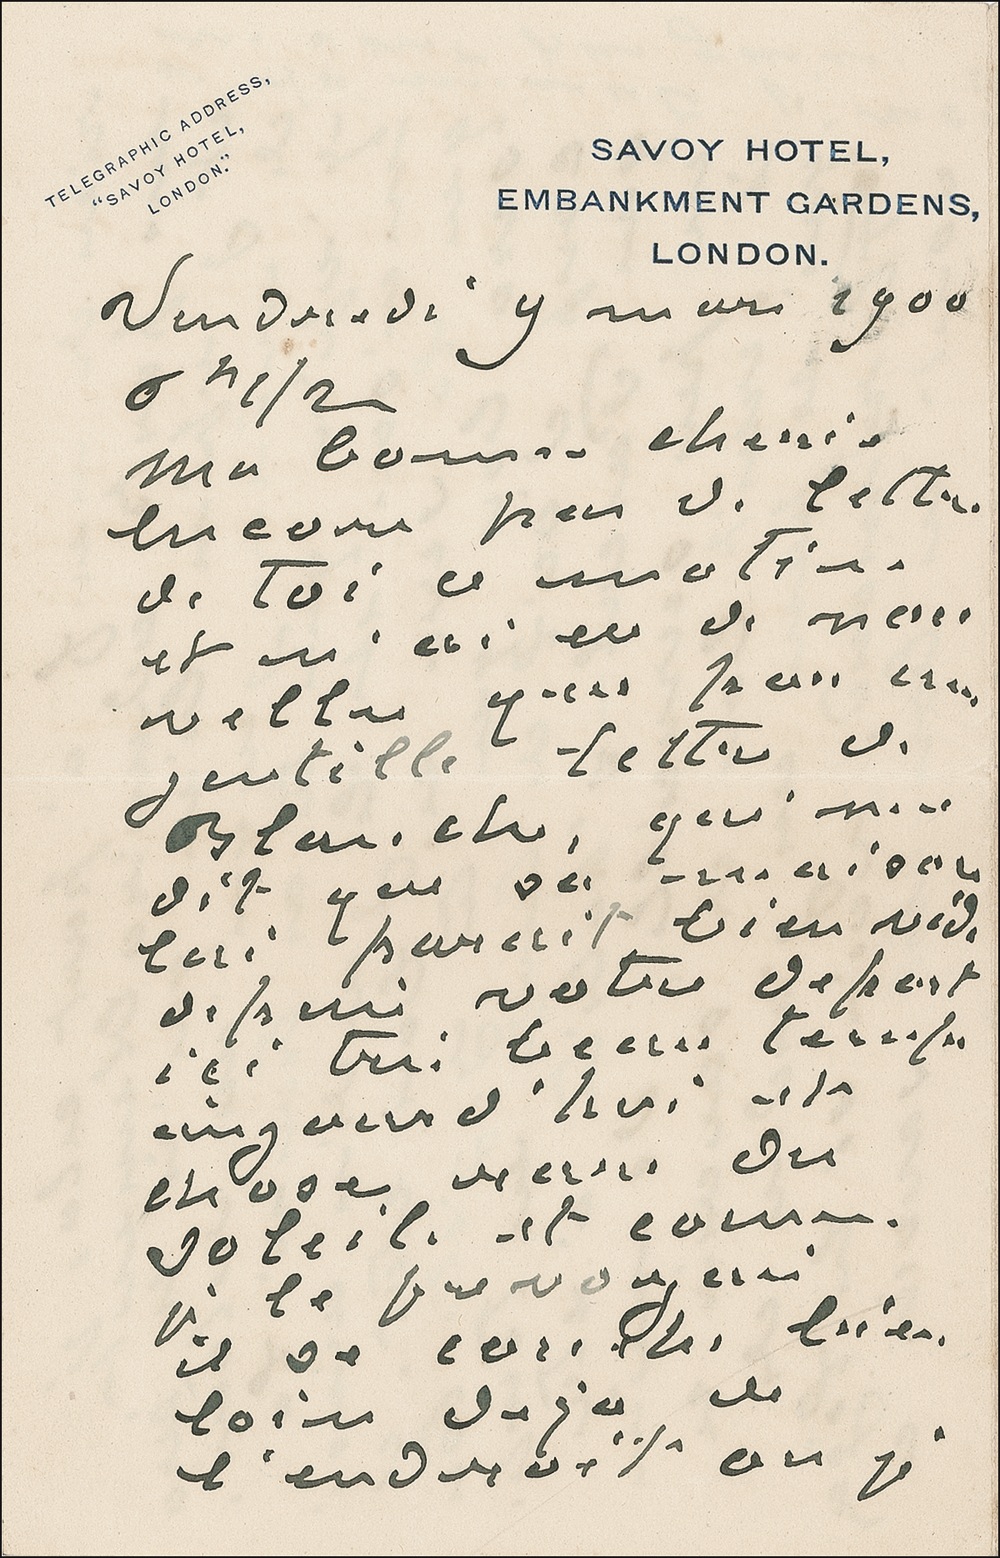 TELEGRAPHIC ADDRESS,
"SAVOY HOTEL,
LONDON."
SAVOY HOTEL,
EMBANKMENT GARDENS,
LONDON.
Vendredi 9 mars 1900
6 h 1/2
Ma bonne cherie
Encore pas de lettre
de toi ce matin.
et n'ai eu de nou
velles que par une
gentille lettre de
Blanche, qui me
dit que sa maison
lui parait bien vide
depuis votre depart
ici tres beau temps
aujourd'hui et
chose rare du
soleil et comme
je le prevoyais
il se couche bien
loin deja de
l'endroit ou j'